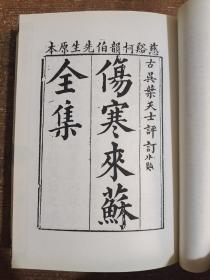 慈谿柯韻伯先生原本
古吳葉天士評訂
傷寒來蘇
全集